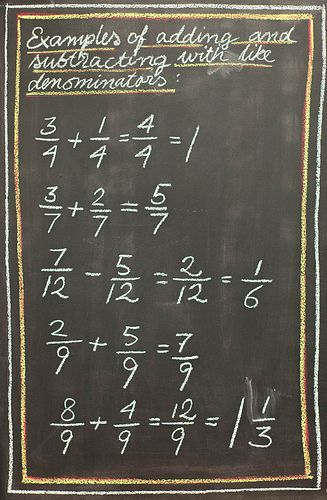 Examples of adding and
subtracting with like
denominators:
3/4 + 1/4 = 4/4 = 1
3/7 + 2/7 = 5/7
7/12 - 5/12 = 2/12 = 1/6
2/9 + 5/9 = 7/9
8/9 + 4/9 = 12/9 = 1 1/3